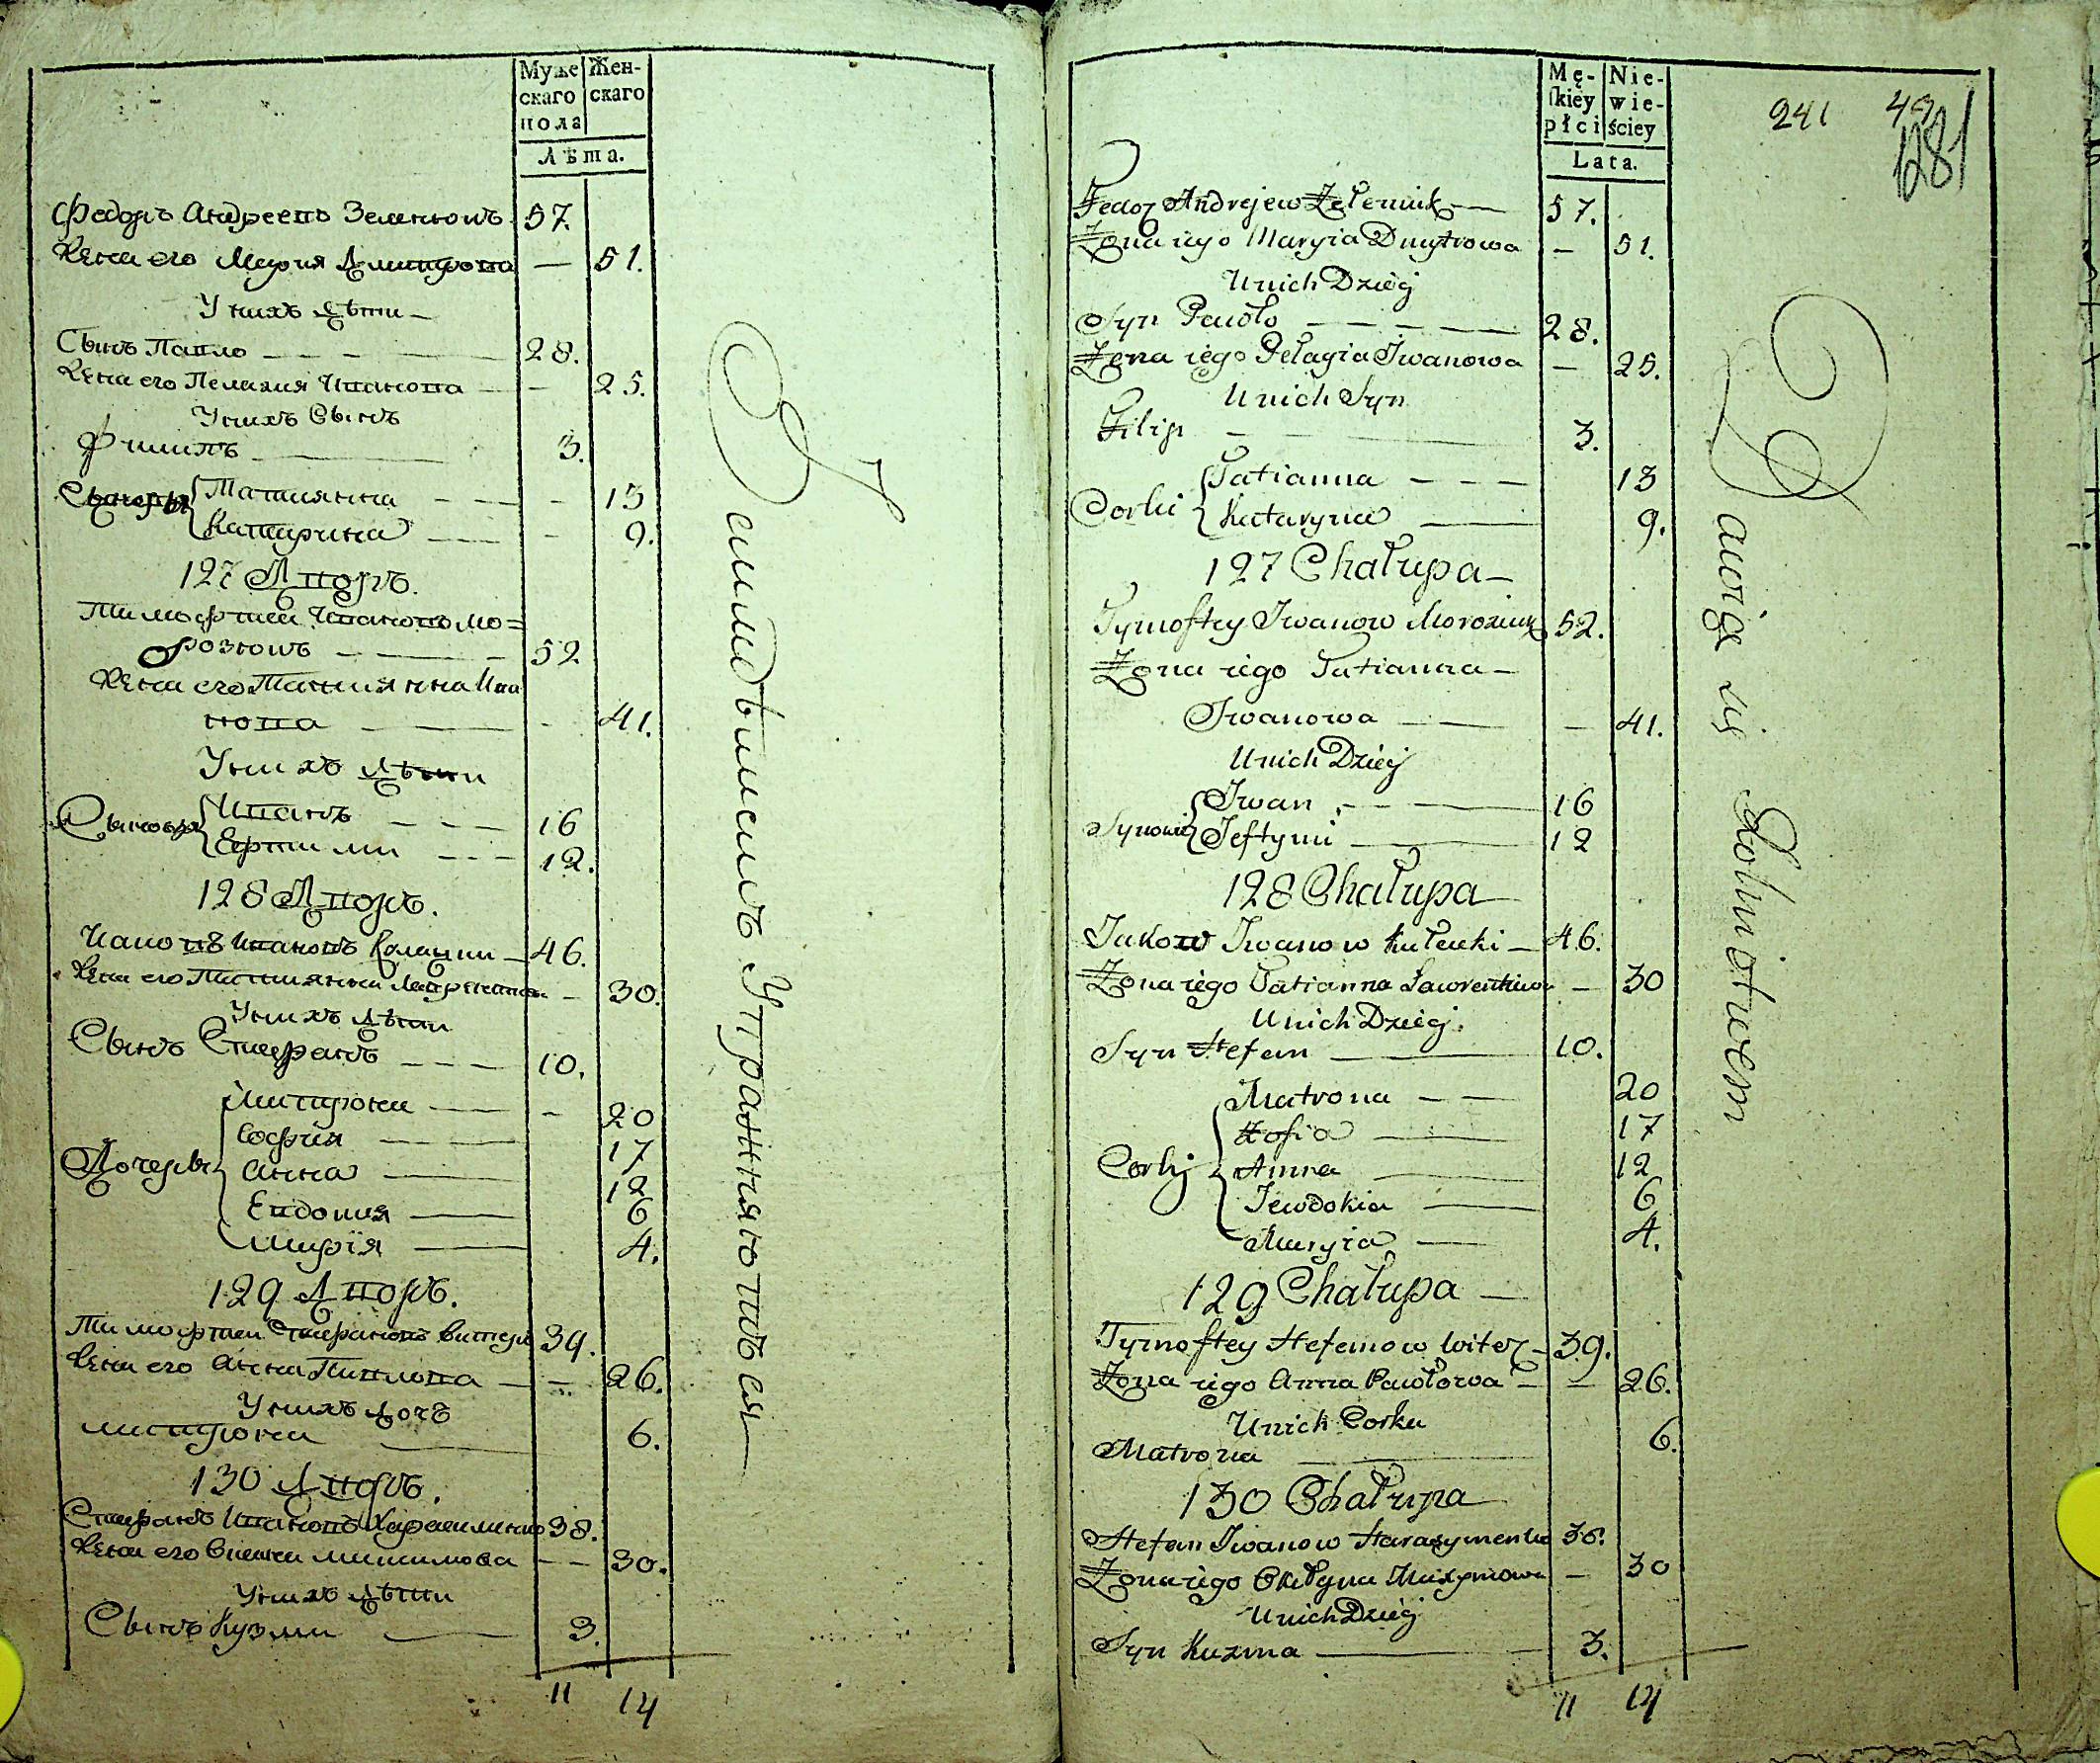 Муже скаго пола
Жен- скаго
Лѣта.
Федоръ Андреевъ Зеленюкъ 57.
Жена его Мария Дмитрова — 51.
У нихъ дѣти —
Сынъ Павло — — — 28.
Жена его Пелагия Иванова — — 25.
У нихъ Сынъ
Филипъ — 3.
Татиянна — — — 13
Катарина — — 9.
127 Дворъ.
Тимофтей Ивановъ Мо=
розюкъ — — 52
Жена его Татиянна Ива
нова — — 41.
У нихъ дѣти
Сыновья Иванъ — — — 16
Ефтими — — — 12.
128 Дворъ.
Яковъ Ивановъ — 46.
Жена его Татиянна — 30.
У нихъ дѣти
Сынъ Стефанъ — — — 10.
Матрона — — 20
София — — 17
Дочери Анна — 12
Евдокия — 6
Мария — 4.
129 Дворъ.
Тимофтей Стефановъ Витеръ 39.
Жена его Анна Павлова — — 26.
У нихъ дочь
Матрона — 6.
130 Дворъ.
Стефанъ Ивановъ 38.
Жена его Максимова — — 30.
У нихъ дѣти
Сынъ Кузма — 3.
11 14
Земледѣлиемъ Упражняются —
Mę- skiey płci
Nie- wie- ściey
Lata.
241
281
Fedor Andrejew Zeleniuk — 57.
Żona iego Maryia Dmytrowa — 51.
U nich Dzieci
Syn Pawło — — — — 28.
Żona iego Pelagia Iwanowa — 25.
U nich Syn
Filip — — 3.
Corki Tatianna — — — 13
Kataryna — 9.
127 Chałupa —
Tymoftey Iwanow Moroziuk 52.
Żona iego Tatianna —
Iwanowa — — — 41.
U nich Dzieci
Synowie Iwan — — — 16
Jeftymi — 12
128 Chałupa
Jakow Iwanow — 46.
Żona iego Tatianna Ławrentiowa — 30
U nich Dzieci.
Syn Stefan — 10.
Matrona — — 20
Zofia — 17
Corki Anna — 12
Jewdokia — 6
Maryia — 4.
129 Chałupa —
Tymoftey Stefanow Witer — 39.
Żona iego Anna Pawłowa — — 26.
U nich Corka
Matrona — 6.
130 Chałupa
Stefan Iwanow Harasymenko 38.
Żona iego Maxymowa — 30
U nich Dzieci
Syn Kuzma — 3.
11 14
Bawią się Rolnictwem